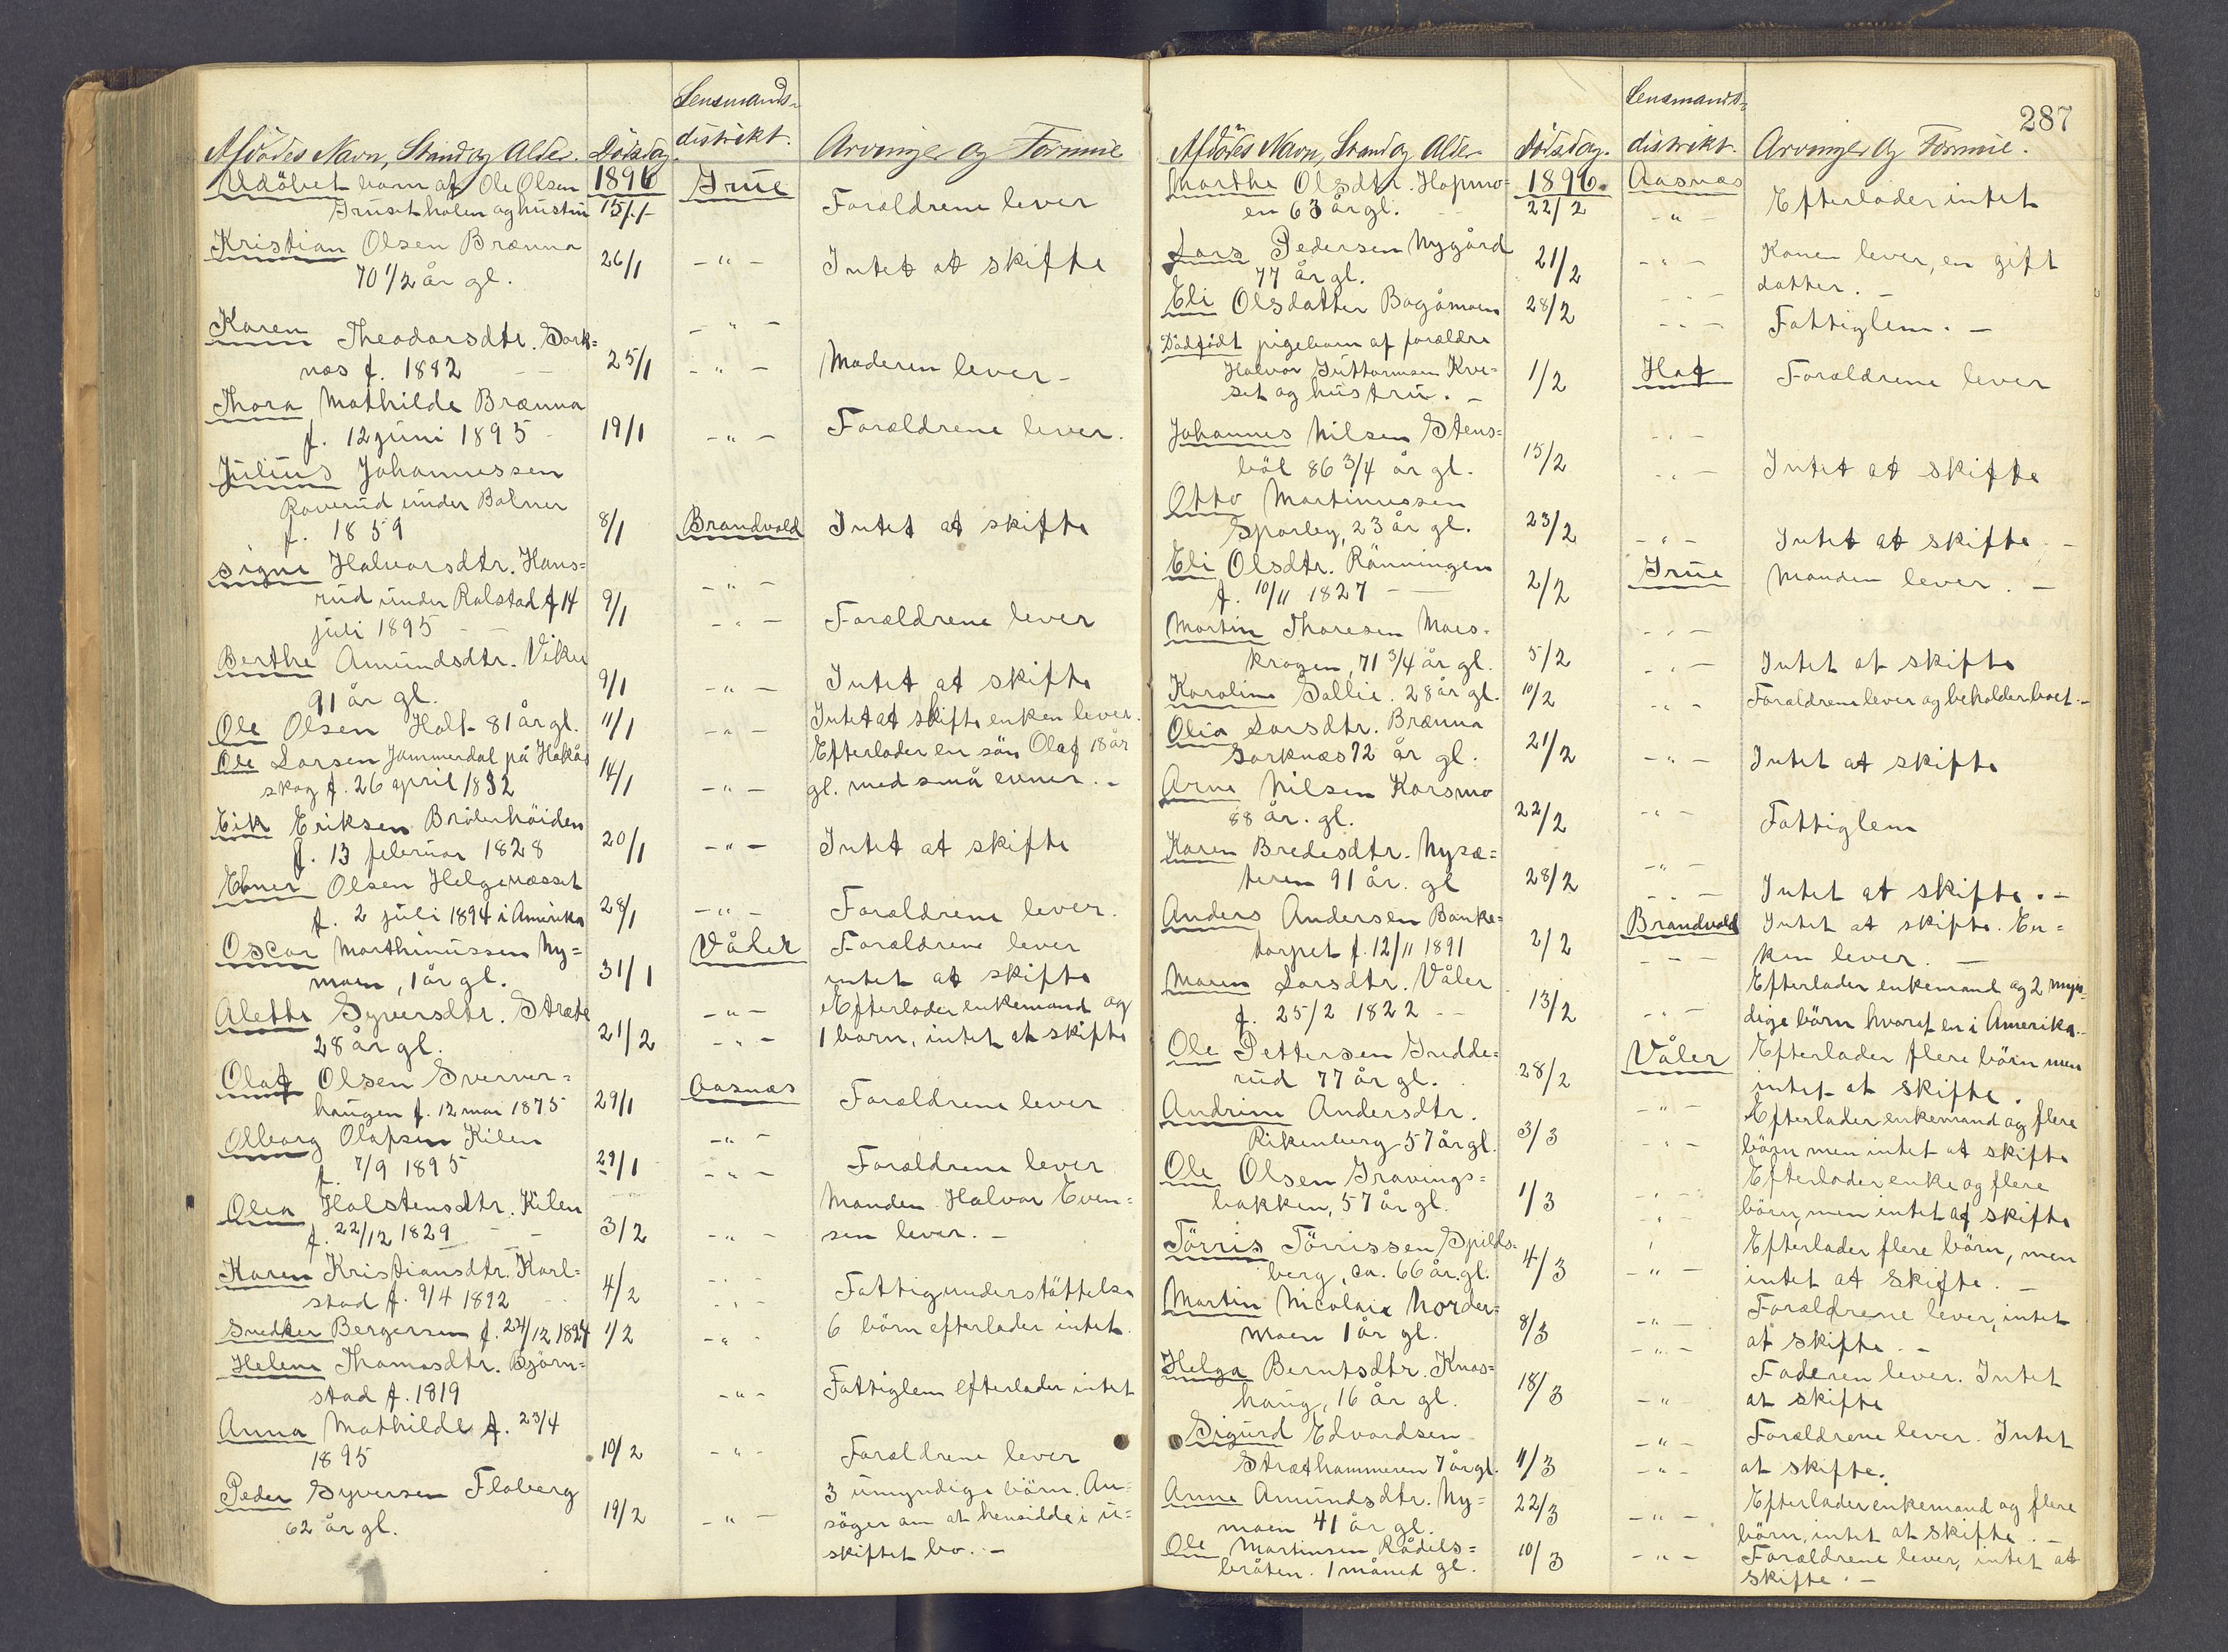 Lensmands-
Afdødes Navn, Stand og Alder. Dødsdag. distrikt. Arvinger og Formue
Udöbet barn af Ole Olsen 1896 Grue
Grusetholen og hustru 15/1 Foræeldrene lever
Kristian Olsen Brænna
70 1/2 år gl. 26/1 -"- Intet at skifte
Karen Theodorsdtr. Sork= -"-
næs f. 1882 25/1 -"- Moderen lever -
Thora Mathilde Brænna
f. 12 juni 1895 19/1 -"- Forældrene lever.
Julius Johannessen
Roverud under Bolner
f. 1859 8/1 Brandvold Intet at skifte
Signe Halvorsdtr. Hans= -"-
rud under Rolstad f 14 9/1 -"- Forældrene lever
juli 1895
Berthe Amundsdtr. Viker
91 år gl. 9/1 -"- Intet at skifte
Ole Olsen Holt 81 år gl. 11/1 -"- Intet at skifte enken lever.
Ole Larsen Jammerdal på Hokås Efterlader en sön Olaf 18 år
skog f. 26 april 1832 14/1 -"- gl. med små evner. -
Eik Eriksen Brölerhöiden
f. 13 februar 1828 20/1 -"- Intet at skifte
Ebner Olsen Helgenæsset
f. 2 juli 1894 i Amerika 28/1 -"- Forældrene lever.
Oscar Marthinussen Ny= Våler Forældrene lever
moen, 1 år gl. 31/1 intet at skifte
Alette Syversdtr. Stræte -"- Efterlader enkemand og
28 år gl. 21/2 -"- 1 barn, intet at skifte
Olaf Olsen Sverver= Aasnæs
haugen f. 12 mai 1875 29/1 Forældrene lever
Olborg Olafsen Kilen -"-
f. 7/9 1895 29/1 -"- Forældrene lever
Olea Halstensdtr. Kilen Manden Halvor Even=
f. 22/12 1829 3/2 -"- sen lever. -
Karen Kristiansdtr. Karl= -"-
stad f. 9/4 1892 4/2 -"- Fattigunderstöttelse
Snedker Bergersen f. 24/12 1824 1/2 -"- 6 börn efterlader intet.
Helene Thomasdtr. Björn=
stad f. 1819 -"- Fattiglem efterlader intet
Anna Mathilde f. 23/4
1895 10/2 -"- Forældrene lever
Peder Syversen Floberg 3 umyndige börn. An=
62 år gl. 19/2 -"- söger om at hensidde i u=
skiftet bo. -
287
Lensmands=
Afdødes Navn, Stand og Alder Dødsdag. distrikt. Arvinger og Formue.
Marthe Olsdtr. Hopmo= 1896. Aasnæs
en 63 år gl. 22/2 -"- Efterlader intet
Lars Pedersen Nygård Konen lever, en gift
77 år gl. 21/2 -"- datter. -
Eli Olsdatter Bogåmoen 28/2 -"- Fattiglem. -
Dödfödt pigebarn af forældre
Halvor Guttormsen Kve= 1/2 Hof Forældrene lever
set og hustru. -
Johannes Nilsen Stens= -"-
böl 86 3/4 år gl. 15/2 -"- Intet at skifte
Otto Martinussen
Sparby, 23 år gl. 23/2 -"- Intet at skifte -
Eli Olsdtr. Rönningen Grue
f. 10/11 1827 2/2 Manden lever. -
Martin Thoresen Moes- -"-
krogen, 71 3/4 år gl. 5/2 -"- Intet at skifte
Karoline Sollie. 28 år gl. 10/2 -"- Forældrene lever og beholder boet. -
Olia Larsdtr. Brænna
Sorknæs 72 år gl. 21/2 -"- Intet at skifte
Arne Nilsen Korsmo
88 år. gl. 22/2 -"- Fattiglem
Karen Bredesdtr. Nysæ= -"-
teren 91 år. gl 28/2 -"- Intet at skifte. -
Anders Andersen Banke= Brandvold Intet at skifte. En=
torpet f. 12/11 1891 2/2 -"- ken lever. -
Maren Larsdtr. Våler Efterlader enkemand og 2 myn=
f. 25/2 1822 -- 13/2 -"- dige börn hvoraf en i Amerika.
Ole Pettersen Gudde= Våler Efterlader flere börn men
rud 77 år gl. 28/2 intet at skifte.
Andrine Andersdtr. -"- Efterlader enkemand og flere
Rikenberg 57 år gl. 3/3 -"- börn men intet at skifte
Ole Olsen Gravings= Efterlader enke og flere
bakken, 57 år gl. 1/3 -"- börn, men intet at skifte
Törris Törrissen Spilds= Efterlader flere börn, men
berg, ca. 66 år. gl. 4/3 -"- intet at skifte. -
Martin Nicolai Norder= Forældrene lever, intet
moen 1 år gl. 8/3 -"- at skifte. -
Helga Berntsdtr. Knos= Faderen lever. Intet
haug, 16 år gl. 18/3 -"- at skifte
Sigurd Edvardsen -"- Forældrene lever. Intet
Stræthammeren 7 år gl. 11/3 -"- at skifte.
Anne Amundsdtr. Ny= Efterlader enkemand og flere
moen 41 år gl. 22/3 -"- börn, intet at skifte. -
Ole Martinsen Rådels= Forældrene lever, intet at
bråten. 1 måned gl. 10/3 -"- skifte. -